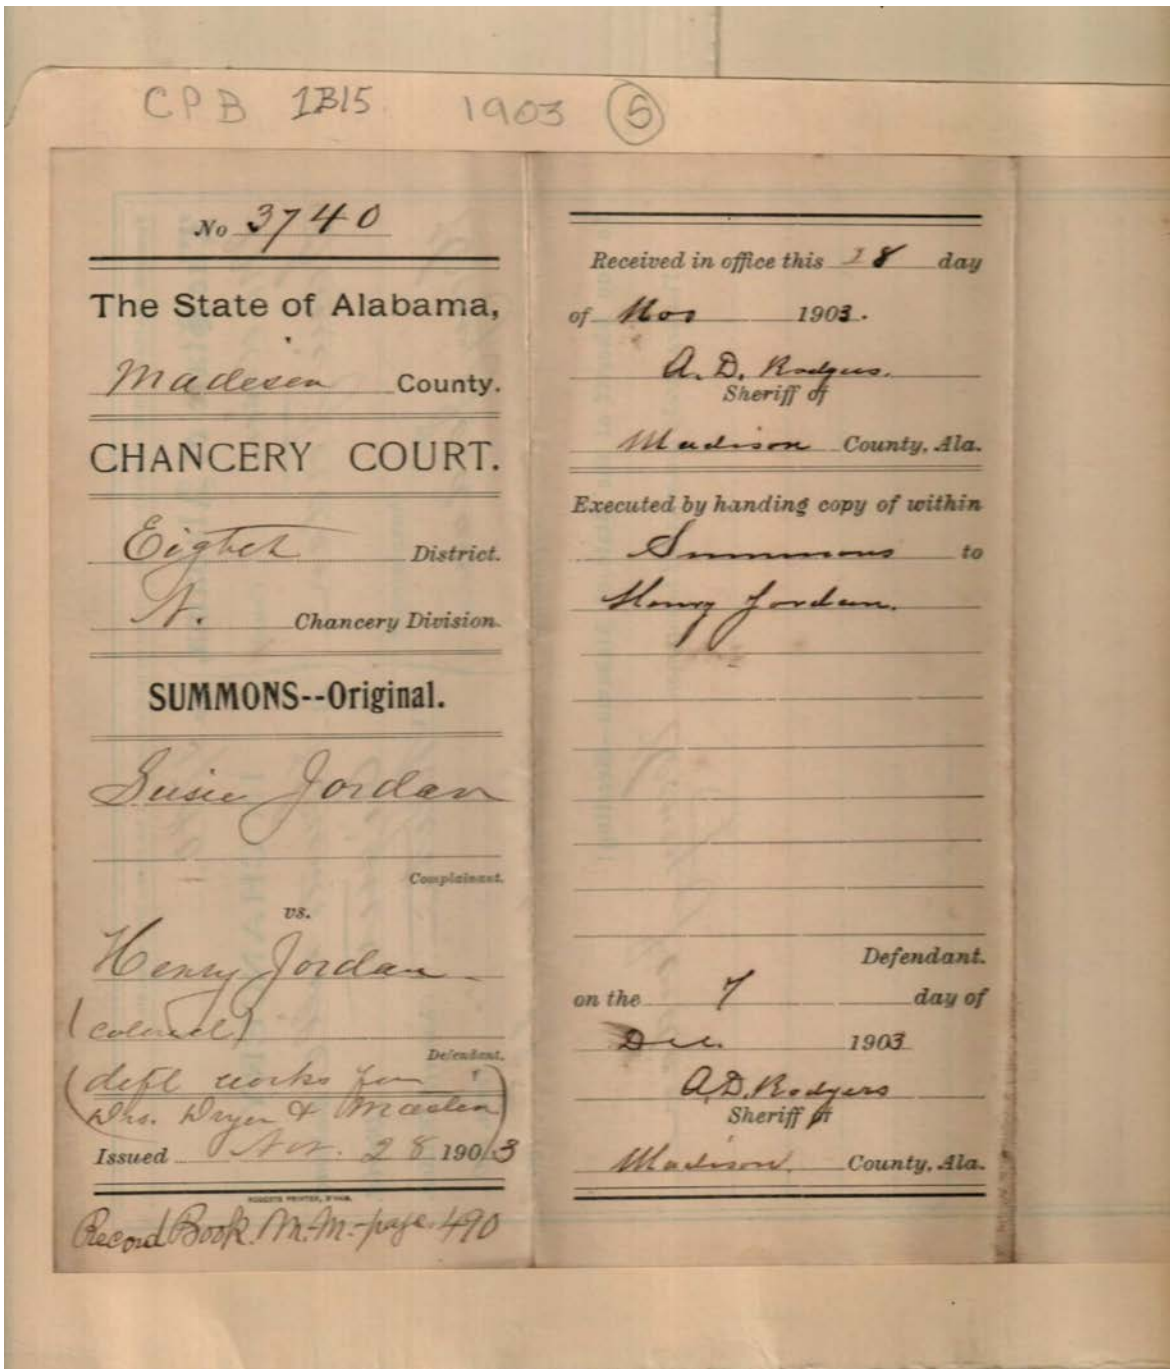 CPB 1B15 1903 5
No 3740
The State of Alabama,
Madison County.
CHANCERY COURT.
Eighth District.
N. Chancery Division.
SUMMONS--Original.
Susie Jordan
Complainant.
vs.
Henry Jordan
(colored)
Defendant.
(deft works for
Drs. Dryer &
Issued Nov. 28 1903
ROBERTS PRINTER, B'HAM.
Record Book M.M. page 490
Received in office this 28 day
of Nov 1903.
A. D. Rodgers.
Sheriff of
Madison County, Ala.
Executed by handing copy of within
Summons to
Henry Jordan.
Defendant.
on the 7 day of
Dec. 1903
A.D. Rodgers
Sheriff of
Madison County, Ala.